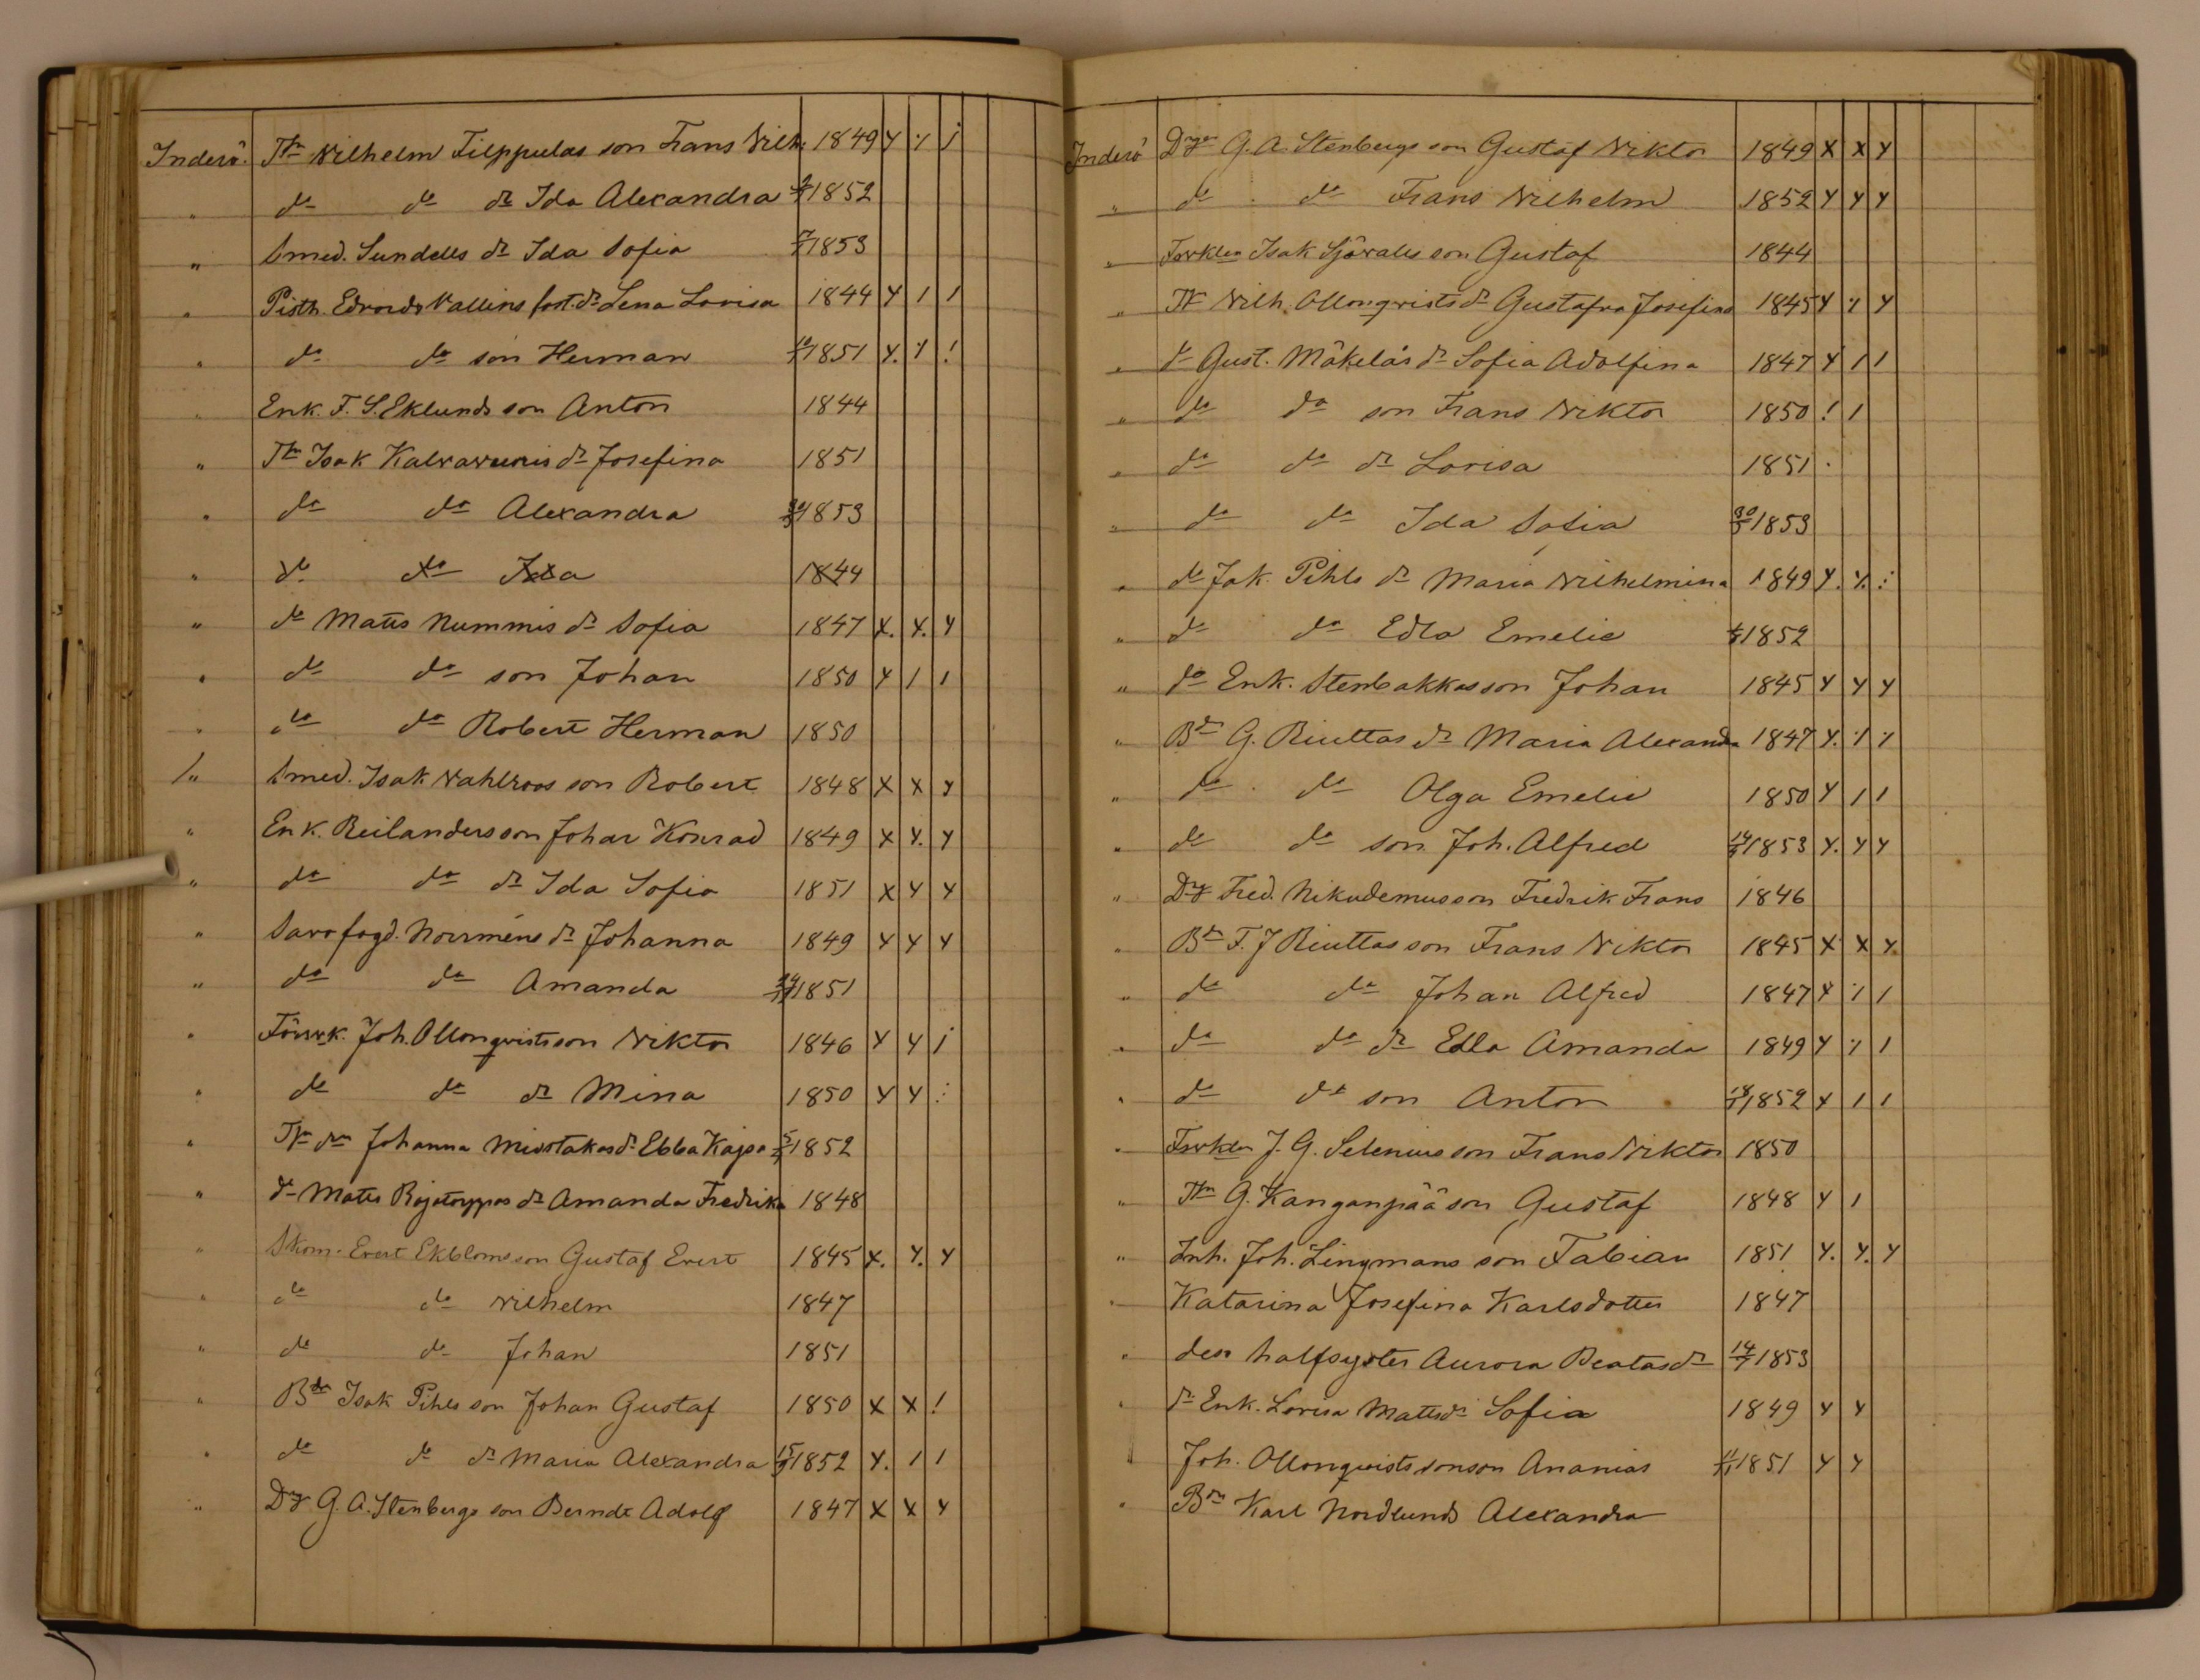 Inderö. Tr Wilhelm Filppulas son Frans Vilh. 1849 Y ٪ j
„ do do dr Ida Alexandra 1852
„ Smed. Sundells dr Ida Sofia 1853
„ Pisth. Edvards Vallins fost. dr Lena Lovisa 1844 Y 1 1
„ do do son Herman 1851 Y. 1 !
„ Enk. F. S. Eklunds son Anton 1844
„ Tr Isak dr Josefina 1851
„ do do Alexandra 1853
„ do do Ida 1844
„ do Matts Nummis dr Sofia 1847 X. Y. Y
„ do do son Johan 1850 Y 1 1
„ do do Robert Herman 1850
„ Smed. Isak Wahlroos son Robert 1848 X X Y
„ Enk. Reilanders son Johan Konrad 1849 X Y. Y
„ do do dr Ida Sofia 1851 X Y Y
„ Norrméns dr Johanna 1849 Y Y Y
„ do do Amanda 1851
„ Förvk. Joh. Ollonqvists son Viktor 1846 Y Y j
„ do do dr Mina 1850 Y Y :
„ Johanna dr Ebba Kajsa 1852
„ do Matts dr Amanda Fredrika 1848
„ Skom. Evert Ekbloms son Gustaf Evert 1845 X. Y. Y
„ do do Wilhelm 1847
„ do do Johan 1851
„ Isak Pihls son Johan Gustaf 1850 X X !
„ do do dr Maria Alexandra 15/9 1852 Y. 1 1
„ Dr G. A. Stenbergs son Berndt Adolf 1847 X X Y
Inderö G. A. Stenbergs son Gustaf Wiktor 1849 X X Y
„ do do Frans Wilhelm 1852 Y Y Y
„ Isak Sjövalls son Gustaf 1844
„ Tr Wilh. Ollonqvists dr Gustafva Josefina 1845 Y ٪ Y
„ do Gust. Mäkeläs dr Sofia Adolfina 1847 Y 1 1
„ do do son Frans Wiktor 1850 ! 1
„ do do dr Lovisa 1851 .
„ do do Ida Sofia 30/5 1853
„ do Jak. Pihls dr Maria Wilhelmina 1849 Y. Y. :
„ do do Edla Emelie 1852
„ do Enk. Stenbakkas son Johan 1845 Y Y Y
„ G. Riuttas dr Maria Alexandra 1847 Y. ٪ ٪
„ do do Olga Emelie 1850 Y 1 1
„ do do son Joh. Alfred 1853 Y. Y Y
„ Dr Fred. Nikudemus son Fredrik Frans 1846
„ F. J Riuttas son Frans Wiktor 1845 X X Y.
„ do do Johan Alfred 1847 Y ٪ 1
„ do do dr Edla Amanda 1849 Y ٪ 1
„ do do son Anton 1852 Y 1 1
„ J. G. Selenius son Frans Wiktor 1850
„ Tr G. Kanganpää son Gustaf 1848 Y 1
„ Inh. Joh. Lingmans son Fabian 1851 Y. Y. Y
„ Katarina Josefina Karlsdotter 1847
„ dess halfsyster Aurora Beatasdr 14/7 1853
„ Enk. Lovisa Mattsdr Sofia 1849 Y Y
Joh. Ollonqvists sonson Ananias 1851 Y Y
„ Karl Nordlunds Alexandra